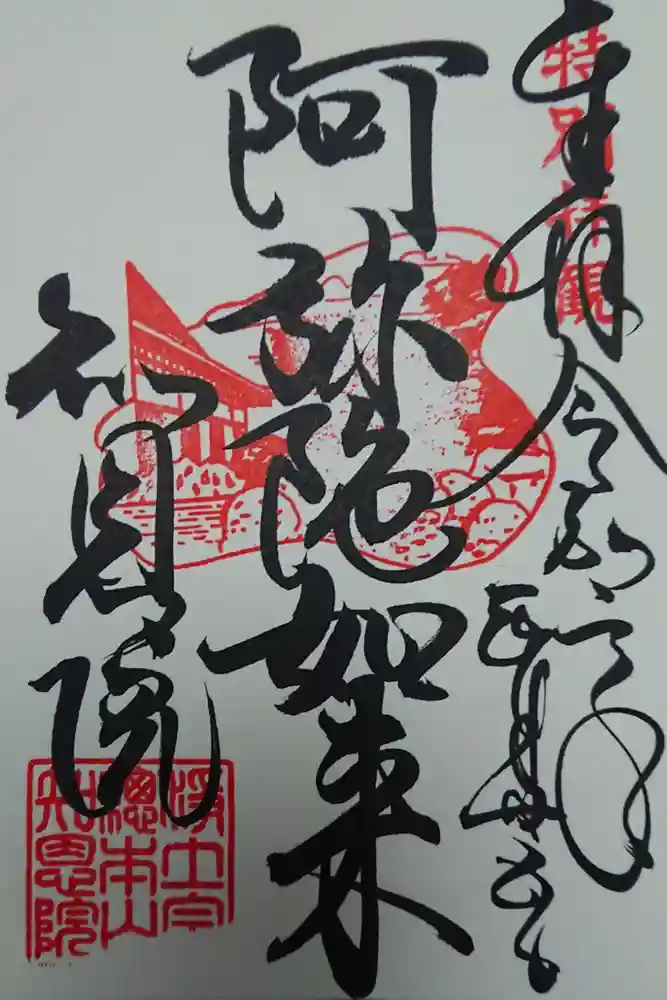 特別拝観
奉拝 令和元年
阿弥陀如来
知恩院
浄土宗
總本山
知恩院